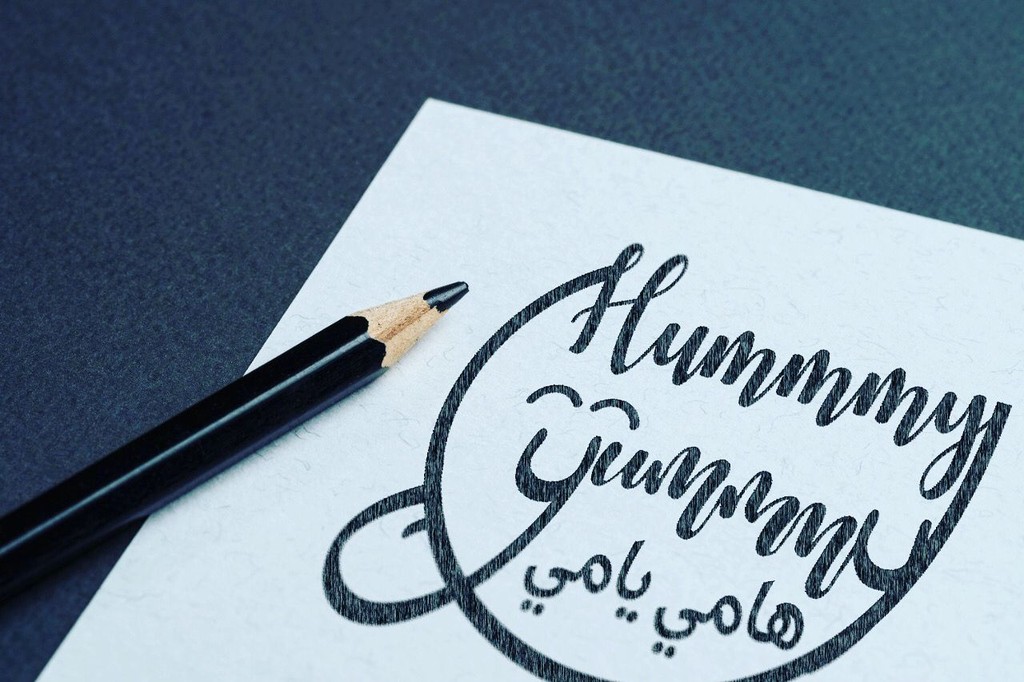 Hummmy
yummmy
هامي يامي